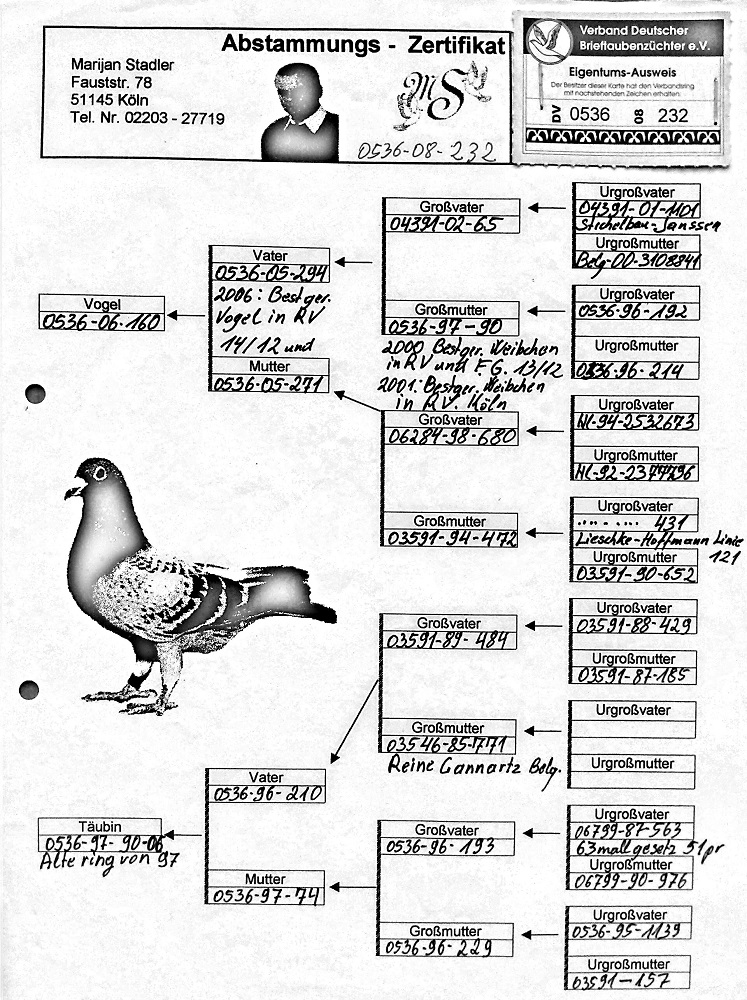 Abstammungs - Zertifikat
Marijan Stadler
Fauststr. 78
51145 Köln
Tel. Nr. 02203 - 27719
MS
0536-08-232
Verband Deutscher
Brieftaubenzüchter e.V.
Eigentums-Ausweis
Der Besitzer dieser Karte hat den Verbandsring
mit nachstehenden Zeichen erhalten.
DV 0536 08 232
Vogel
0536-06-160
Vater
0536-05-294
2006: Best ger.
Vogel in RV
14/12 und
Mutter
0536-05-271
Großvater
04391-02-65
Großmutter
0536-97-90
2000 Bestger. Weibchen
in RV und F.G. 13/12
2001: Bestger. Weibchen
in RV. Köln
Großvater
06284-98-680
Großmutter
03591-94-472
Urgroßvater
04391-01-1101
Stichelbau-Janssen
Urgroßmutter
Belg-00-3108841
Urgroßvater
0536-96-192
Urgroßmutter
0536-96-214
Urgroßvater
NL-94-2532673
Urgroßmutter
NL-92-2377796
Urgroßvater
431
Lieschke-Hoffmann Linie
Urgroßmutter 121
03591-90-652
Täubin
0536-97-90-06
Alte ring von 97
Vater
0536-96-210
Mutter
0536-97-74
Großvater
03591-89-484
Großmutter
03546-85-771
Reine Cannartz Belg.
Großvater
0536-96-193
Großmutter
0536-96-229
Urgroßvater
03591-88-429
Urgroßmutter
03591-87-185
Urgroßvater
Urgroßmutter
Urgroßvater
06799-87-563
63mall gesetz 51pr
Urgroßmutter
06799-90-976
Urgroßvater
0536-95-1139
Urgroßmutter
03591-157